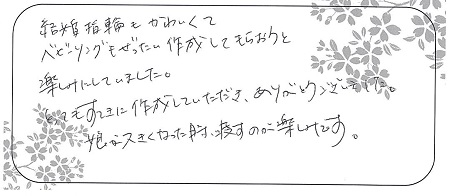 結婚指輪もかわいくて
ベビーリングもぜったい作成してもらおうと
楽しみにしていました。
とってもすてきに作成していただき、ありがとうございました。
娘が大きくなった時、渡すのが楽しみです。